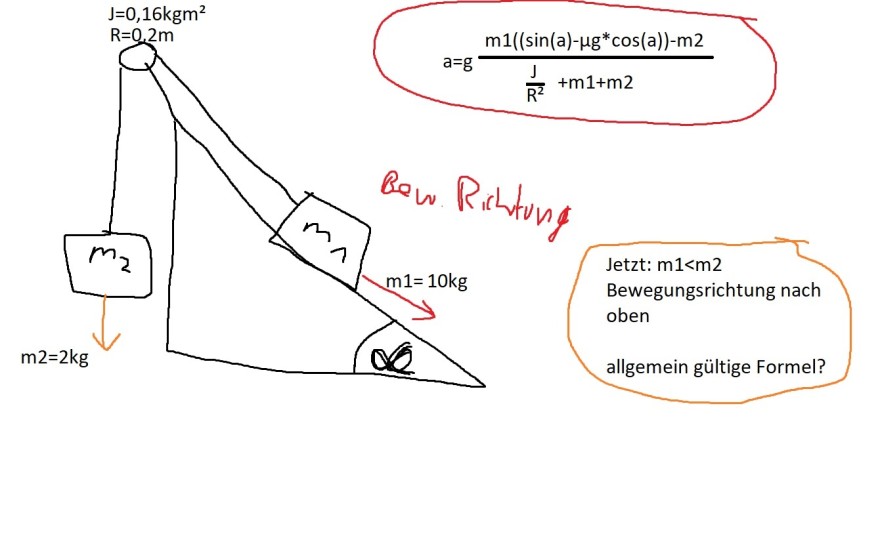 J=0,16kgm²
R=0,2m
a=g m1((sin(a)-µg*cos(a))-m2
J
R² +m1+m2
Bew. Richtung
m2
m1
m1= 10kg
m2=2kg
α
Jetzt: m1<m2
Bewegungsrichtung nach
oben
allgemein gültige Formel?